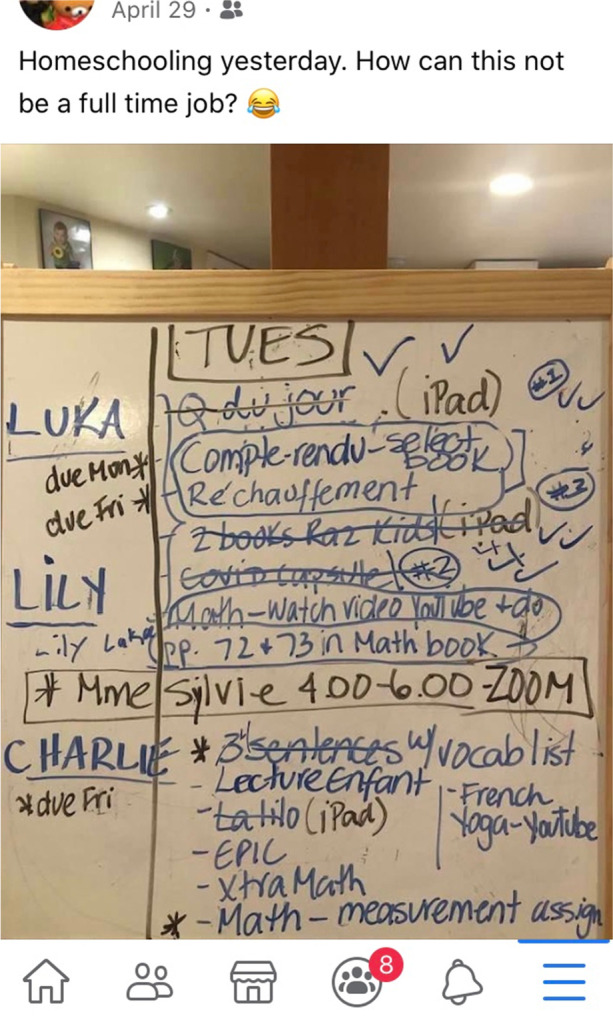 April 29 ·
Homeschooling yesterday. How can this not
be a full time job? 😂
TUES
LUKA
Q du jour . (iPad) #1
due Mon *
Comple-rendu-select book
due Fri *
Réchauffement #3
2 books Raz Kids (iPad)
LILY
Covid capsule #2
Math-Watch video YouTube + do
Lily Luka
pp. 72 + 73 in Math book
* Mme Sylvie 4:00-6:00-ZOOM
CHARLIE
* 3 sentences w/vocab list
* due Fri
- Lecture Enfant
- Tatilo (iPad)
- French
Yoga-Youtube
- EPIC
- Xtra Math
* - Math - measurement assign
8